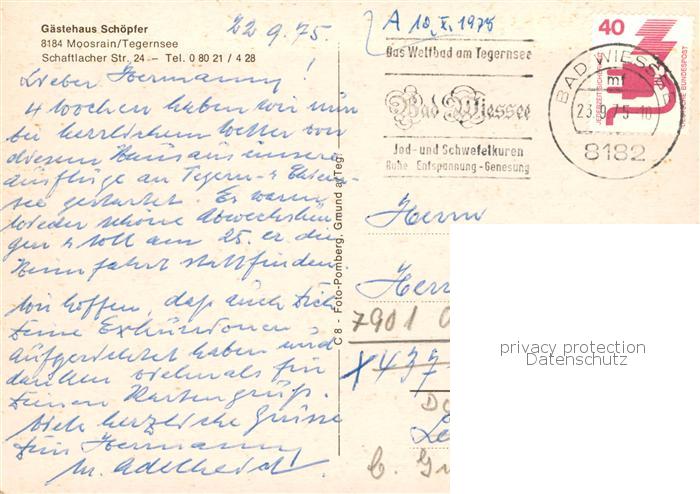 Gästehaus Schöpfer
8184 Moosrain/Tegernsee
Schaftlacher Str. 24 – Tel. 0 80 21 / 4 28
22.9.75.
Lieber Hermann!
4 Wochen haben wir nun
bei herrlichem Wetter von
diesem Haus aus unsere
Ausflüge am Tegern-
see gestartet. Es waren
wieder schöne Abwechslun-
gen u. soll am 25. er. die
Heimfahrt stattfinden.
Wir hoffen, daß auch Dich
Deine Exkursionen
aufgerichtet haben und
danken vielmals für
Deinen Kartengruß.
Viele herzliche Grüsse
Dein Hermann
u. Adelheid!
C 8 - Foto-Pomberg, Gmund a/Teg.
A 10.X.1975
Das Weltbad am Tegernsee
Bad Wiessee
Jod- und Schwefelkuren
Ruhe - Entspannung - Genesung
BAD WIESSEE
mf
23.9.75
8182
40
JEDERZEIT SICHERHEIT
DEUTSCHE BUNDESPOST
Herrn
7901
X 437
privacy protection
Datenschutz